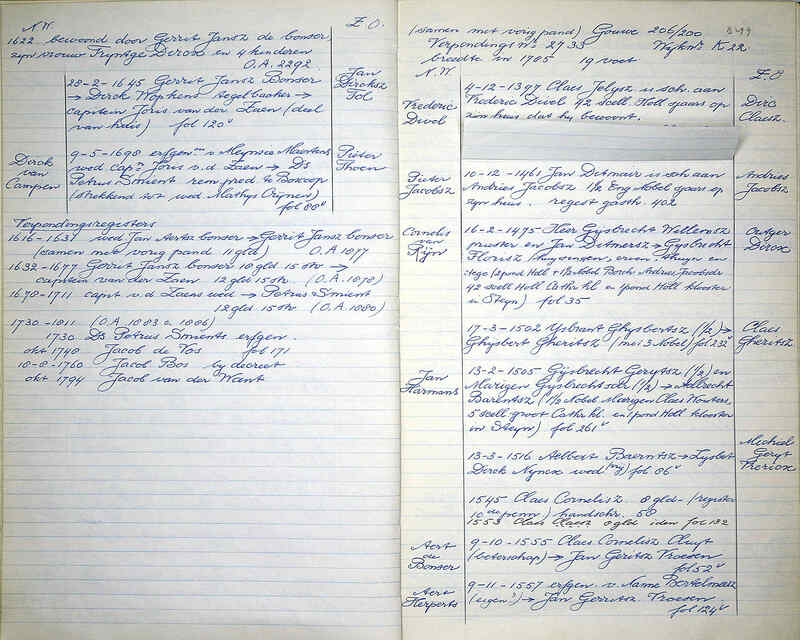 N.W. Z.O.
1622 bewoond door Gerrit Jansz de bonser,
zijn vrouw Fryntge Dircx en 4 kinderen
O.A. 2292
28-2-1645 Gerrit Jansz Bonser
→ Dirck Wopkens tegelbacker →
capitein Joris van der Laen (deel
van huis) fol 120v
Jan
Dircksz
Tol
9-5-1698 erfgen v Meynsie Maertens
wed Capn Joris v.d Laen → Ds
Petrus Sment rem pred. te Boscoop
(strekkend tot wed Mathys Crynen)
fol 80v
Dirck
van
Campen
Pieter
Thoen
Verpondingsregisters
1616-1631 wed Jan Aertsz bonser → Gerrit Jansz bonser
(samen met vorig pand 11 gld) O.A. 1077
1632-1677 Gerrit Jansz bonser 10 gld 15 str →
captein van der Laen 12 gld 15 str (O.A. 1078)
1678-1711 capt v.d Laens wed → Petrus Sment
12 gld 15 str (O.A. 1080)
1730-1811 (O.A. 1083 a 1086)
1730 Ds Petrus Sments erfgen.
okt 1740 Jacob de Vos fol 171
18-8-1760 Jacob Bos by decreet
okt 1794 Jacob van der Want
(samen met vorig pand) Gouwe 206/200
Verpondings No 2735 Wijkno K 22
breedte in 1785 19 voet
N.W. Z.O
4-12-1397 Claes Jelysz is sch. aan
Vrederic Duvel 42 scell Holl tjaars op
zijn huis dat hij bewoont.
Vrederic
Duvel
Dirc
Claesz.
10-12-1461 Jan Ditmair is sch aan
Andries Jacobsz 1½ Eng Nobel tjaars op
zijn huis. regest gasth. 402
Pieter
Jacobsz
Andries
Jacobsz
16-2-1475 Heer Gysbrecht Willemsz
priester en Jan Ditmersz → Gysbrecht
Florisz
42 scell Holl Cathr kl en 1 pond Holl klooster
in Steyn) fol 35
Cornelis
van
Rijn
Outger
Dircx
17-3-1502 Ysbrant Ghysbertsz (½) →
Ghysbert Gheritsz (mei 3 Nobel) fol 232v
Claes
Gheritsz
13-2-1505 Gijsbrecht Gerytsz (½) en
Marigen Gysbrechtsdr (½) → Aelbrecht
Barentsz (1½ Nobel Marigen Claes Wouters,
5 scell groot Cathr kl. en 1 pond Holl klooster
in Steyn) fol 261v
Jan
Harmans
13-3-1516 Aelbert Baerntsz → Lysbet
Dirck Nyncx wed fol 86v
Michiel
Geryt
Vrericx
1545 Claes Cornelisz. 8 gld - (register
10de penn) handschr. 58
1553 Claes Claesz 8 gld idem fol 132
9-10-1555 Claes Cornelisz Cluyt
(beterschap) → Jan Geritsz Vroesen
fol 52v
Aert
de
Bonser
9-11-1557 erfgen. v. Name Bertelmeesz
(eigen) → Jan Gerritsz. Vroesen
fol 124v
Aert
Herperts